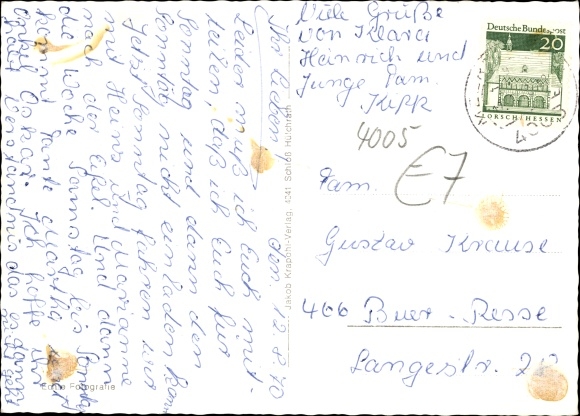 Ihr Lieben! den 12.8.70
Leider muß ich Euch mit-
teilen, daß ich Euch für
Sonntag und dann den
Sonntag nicht einladen kann
Jetzt Sonntag fahren wir
mit Heinz und Marianne
nach der Eifel. Und dann
die Woche Samstag bis
kommt Tante Martha und
Onkel Oskar. Ich hoffe Ihr
habt Verständnis das es
Echte Fotografie
Jakob Krapohl-Verlag, 4041 Schloß Hülchrath
Viele Grüße
von Klara
Heinrich und
Junge Fam.
Kipp
Deutsche Bundespost
20
LORSCH/HESSEN
4005
E7
Fam.
Gustav Krause
466 Buer-Resse
Langestr.